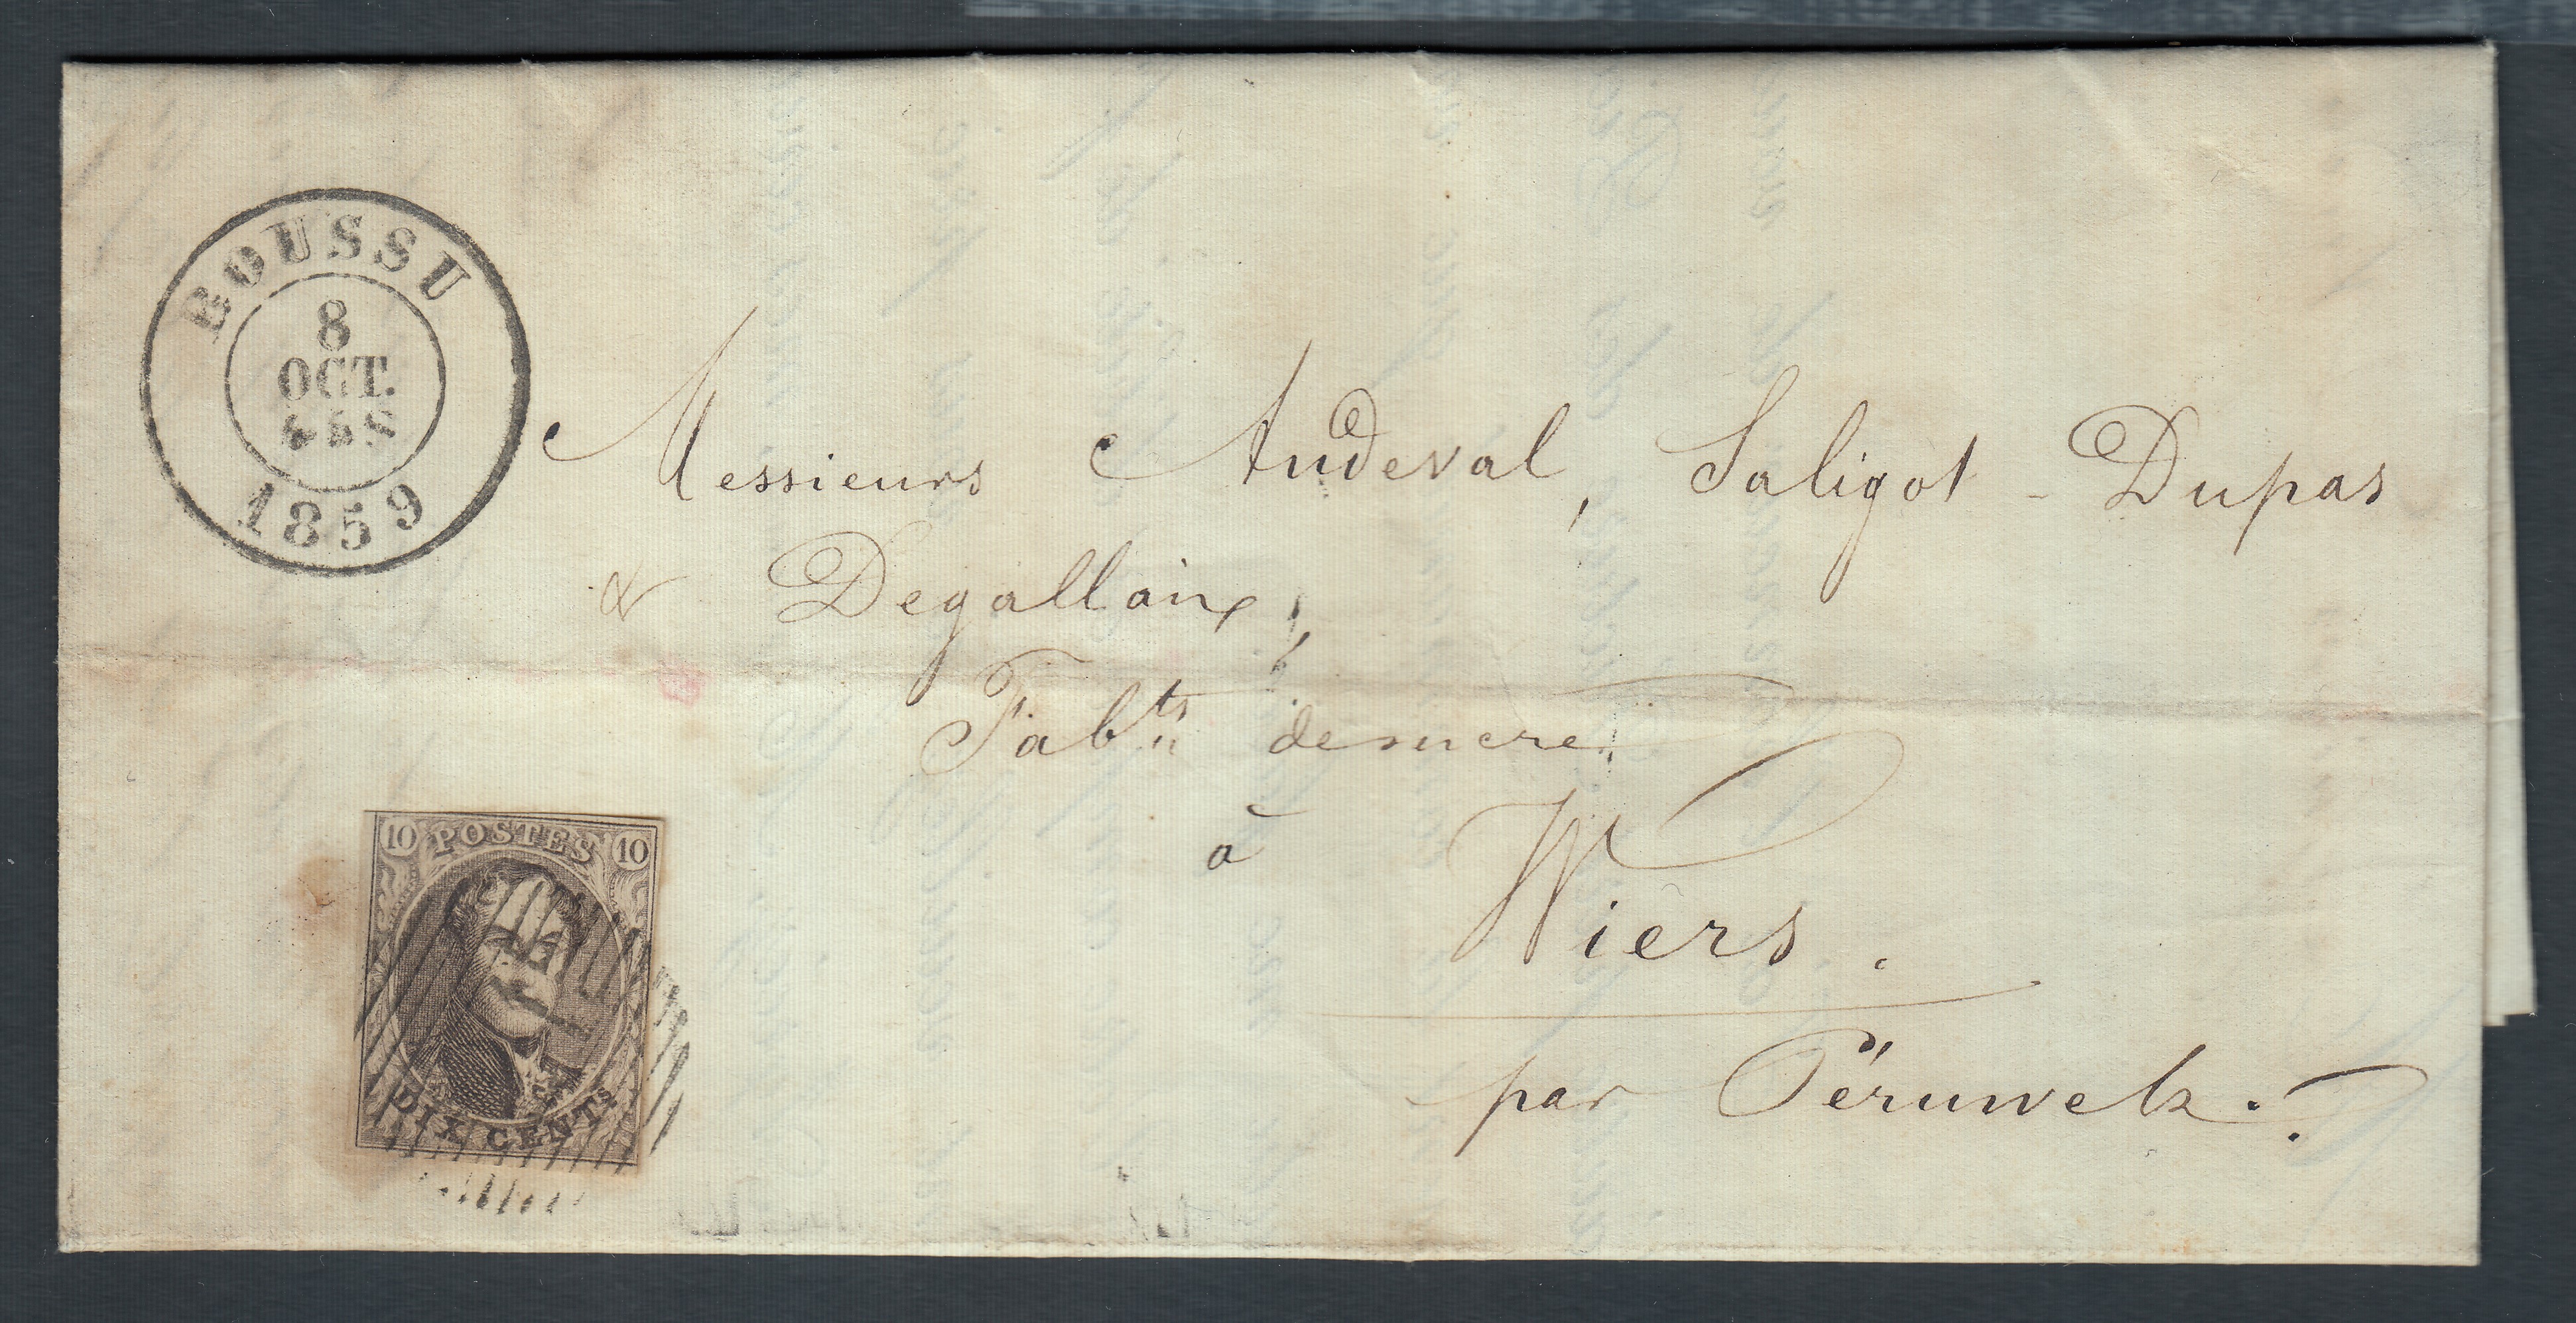 BOUSSU
8
OCT.
1859
Messieurs Audeval, Saligot - Dupas
& Degallaix,
Fab.ts de sucre
à Wiers.
par Péruwelz.
10 POSTES 10
DIX CENTS